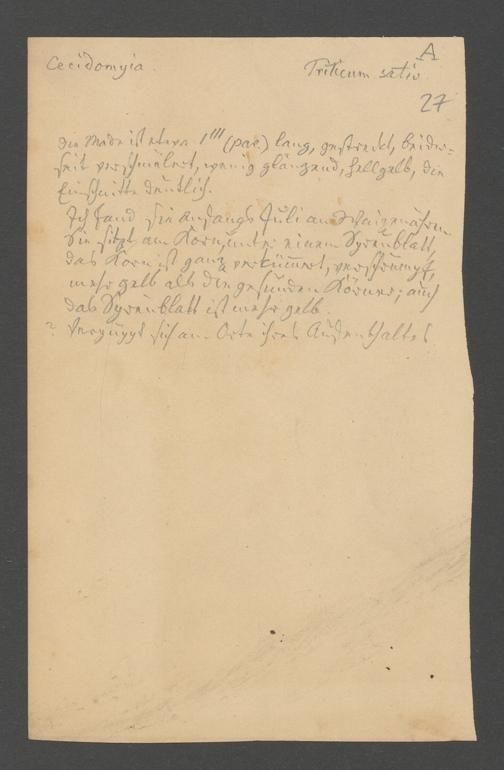 A
Cecidomyia. Triticum sativ.
27
Die Made ist etwa 1''' (par.) lang, gestreckt, beider-
seits verschmälert, wenig glänzend, hellgelb, die
Einschnitte deutlich.
Ich fand sie Anfangs Juli an Waizenähren
Sie sitzt am Korn, unter einem Spreublatt,
das Korn ist ganz verkümmert, verschrumpft,
mehr gelb als die gesunden Körner; auch
das Spreublatt ist mehr gelb.
? Verpuppt sich am Orte ihres Aufenthaltes